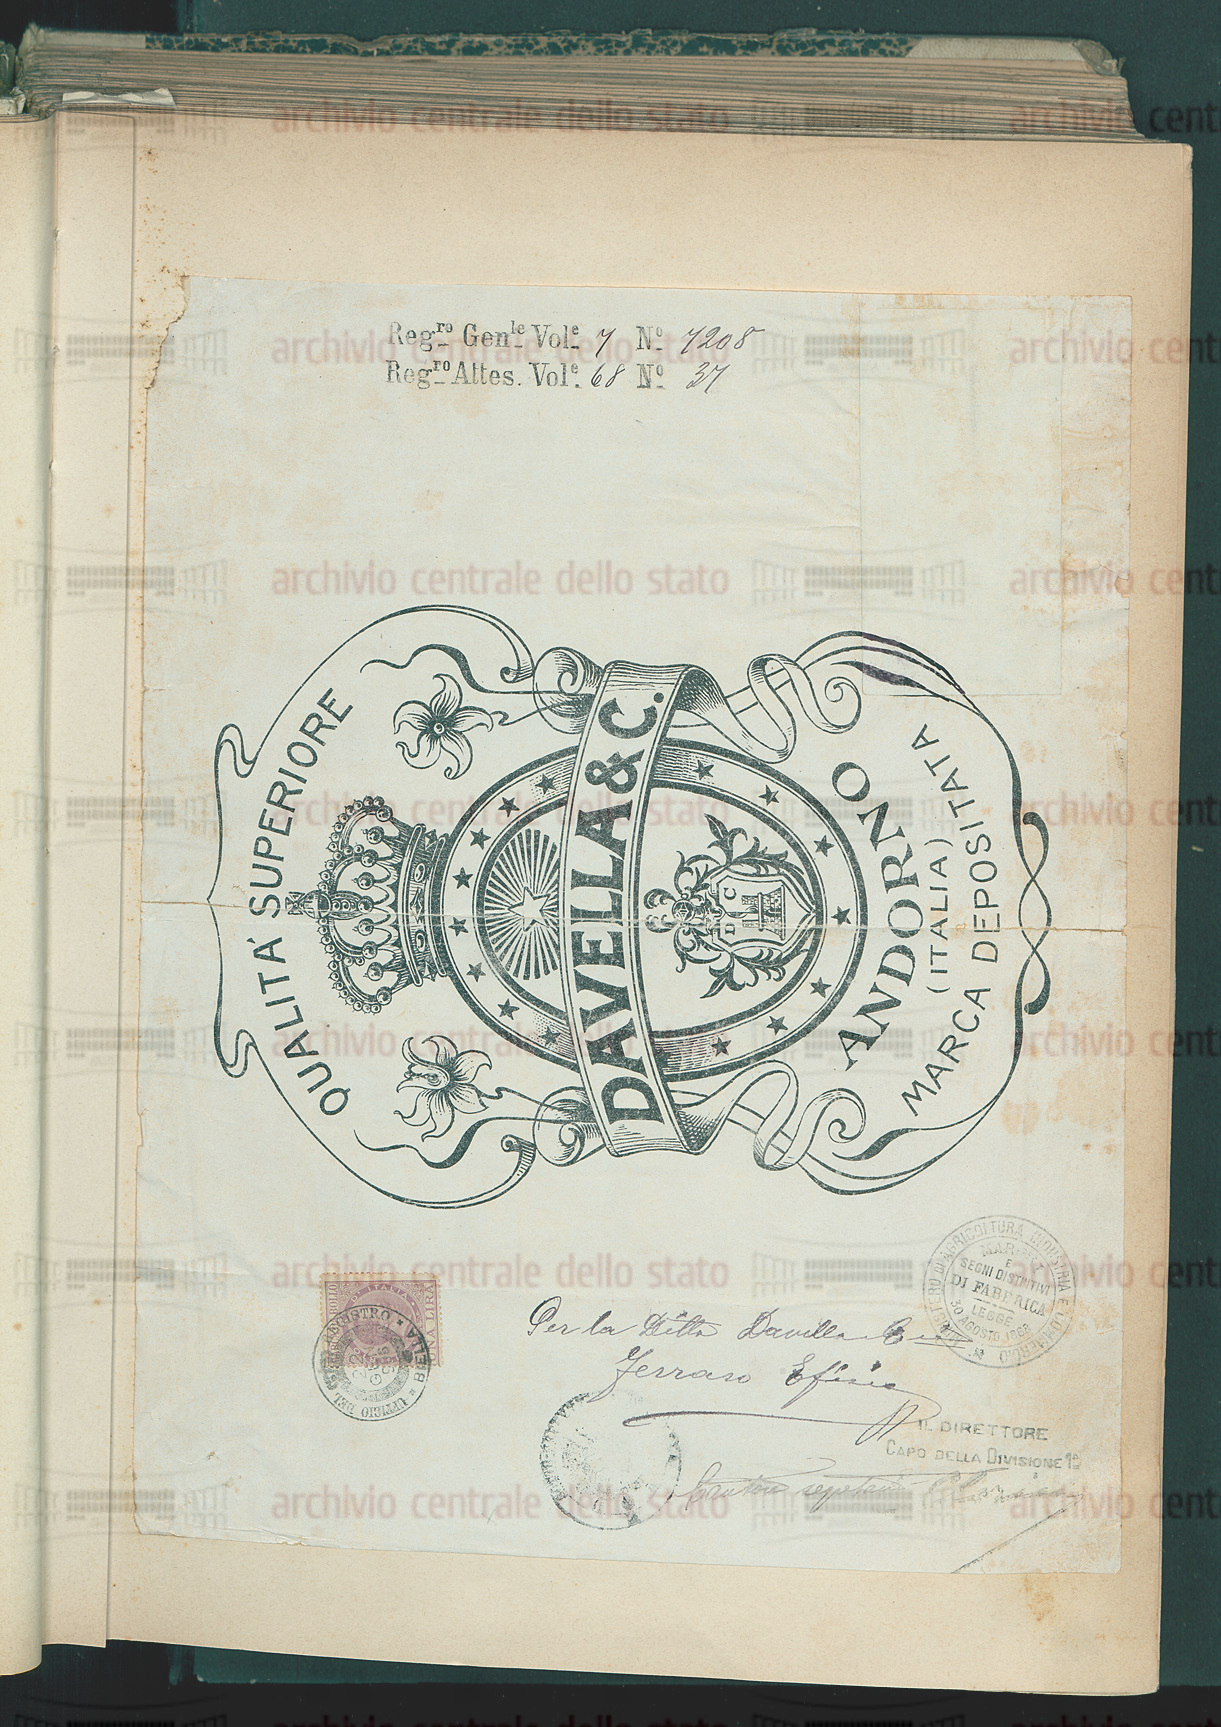 Reg.ro Gen.le Vol.e 7 N.o 7208
Reg.ro Attes. Vol.e 68 N.o 37
QUALITÀ SUPERIORE
DAVELLA & C.
D C
ANDORNO
(ITALIA)
MARCA DEPOSITATA
UFFICIO DEL REGISTRO * BIELLA *
LIRA
Per la Ditta Davella e C.
Ferraro Efisio
MINISTERO DI AGRICOLTURA INDUSTRIA E COMMERCIO
MARCHI
E
SEGNI DISTINTIVI
DI FABBRICA
LEGGE
30 AGOSTO 1868
IL DIRETTORE
CAPO DELLA DIVISIONE 1a
archivio centrale dello stato